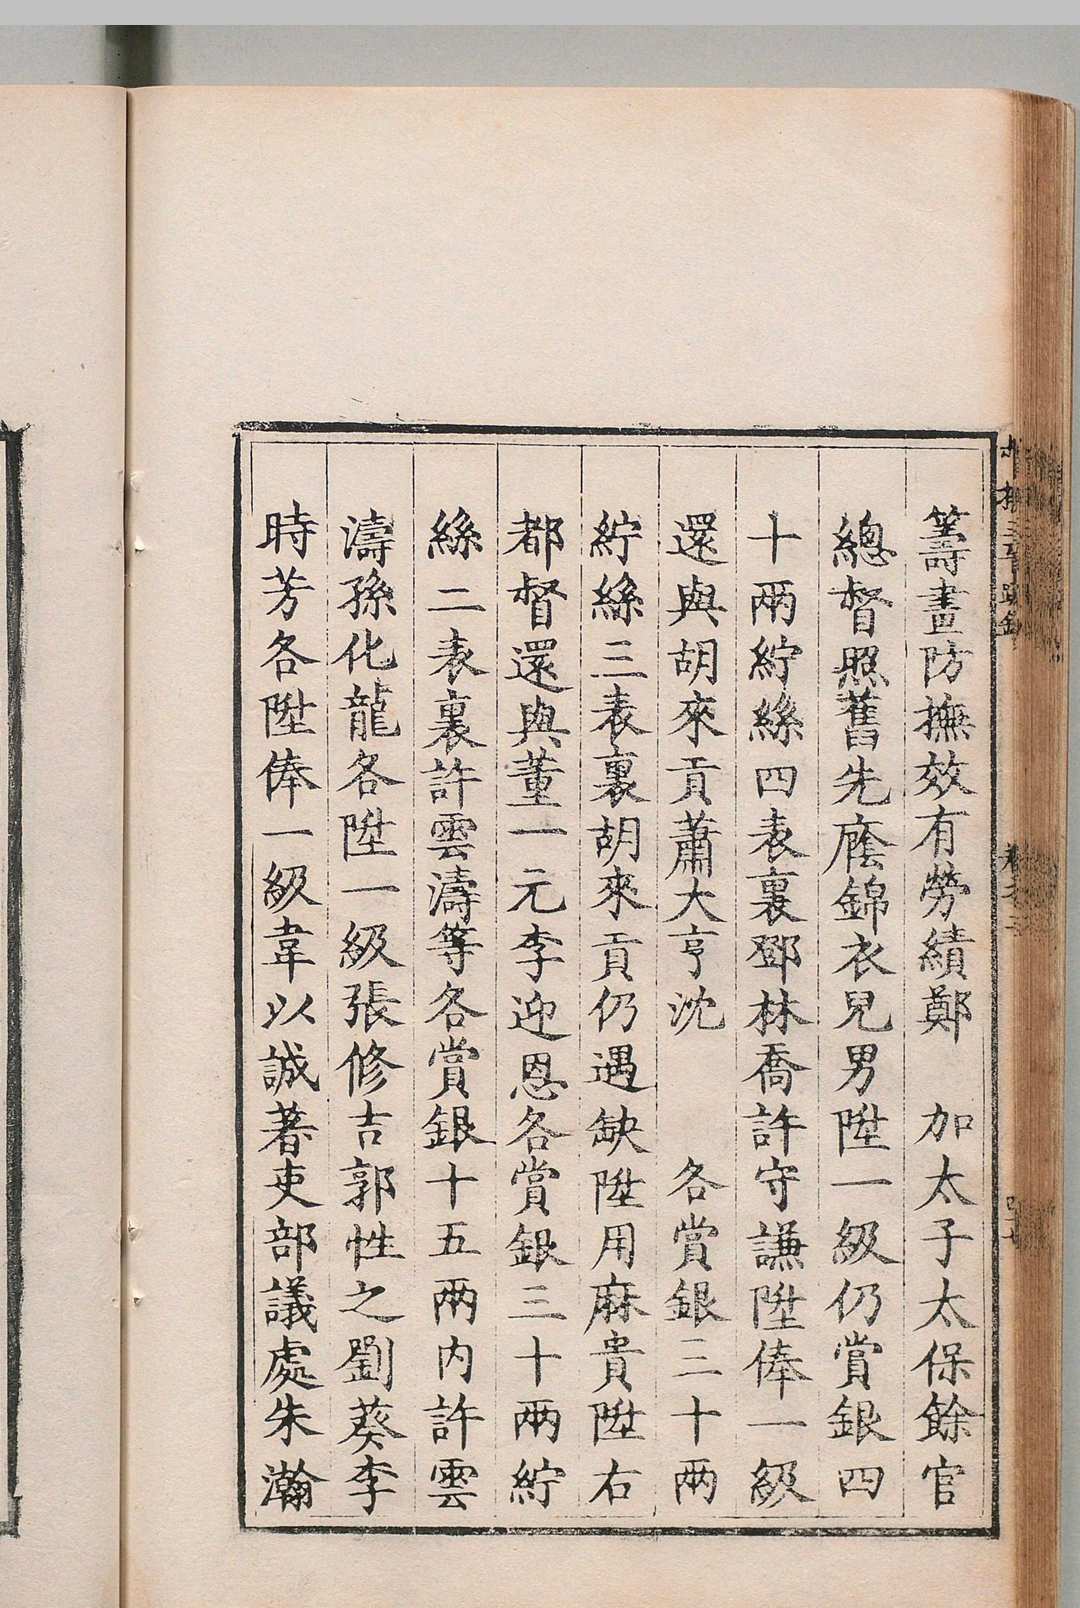 籌畫防撫效有勞績鄭　加太子太保餘官
總督照舊先廕錦衣兒男陞一級仍賞銀四
十兩紵絲四表裏鄧林喬許守謙陞俸一級
還與胡來貢蕭大亨沈　各賞銀三十兩
紵絲三表裏胡來貢仍遇缺陞用麻貴陞右
都督還與董一元李迎恩各賞銀三十兩紵
絲二表裏許雲濤等各賞銀十五兩內許雲
濤孫化龍各陞一級張修吉郭性之劉葵李
時芳各陞俸一級韋以誠著吏部議處朱瀚